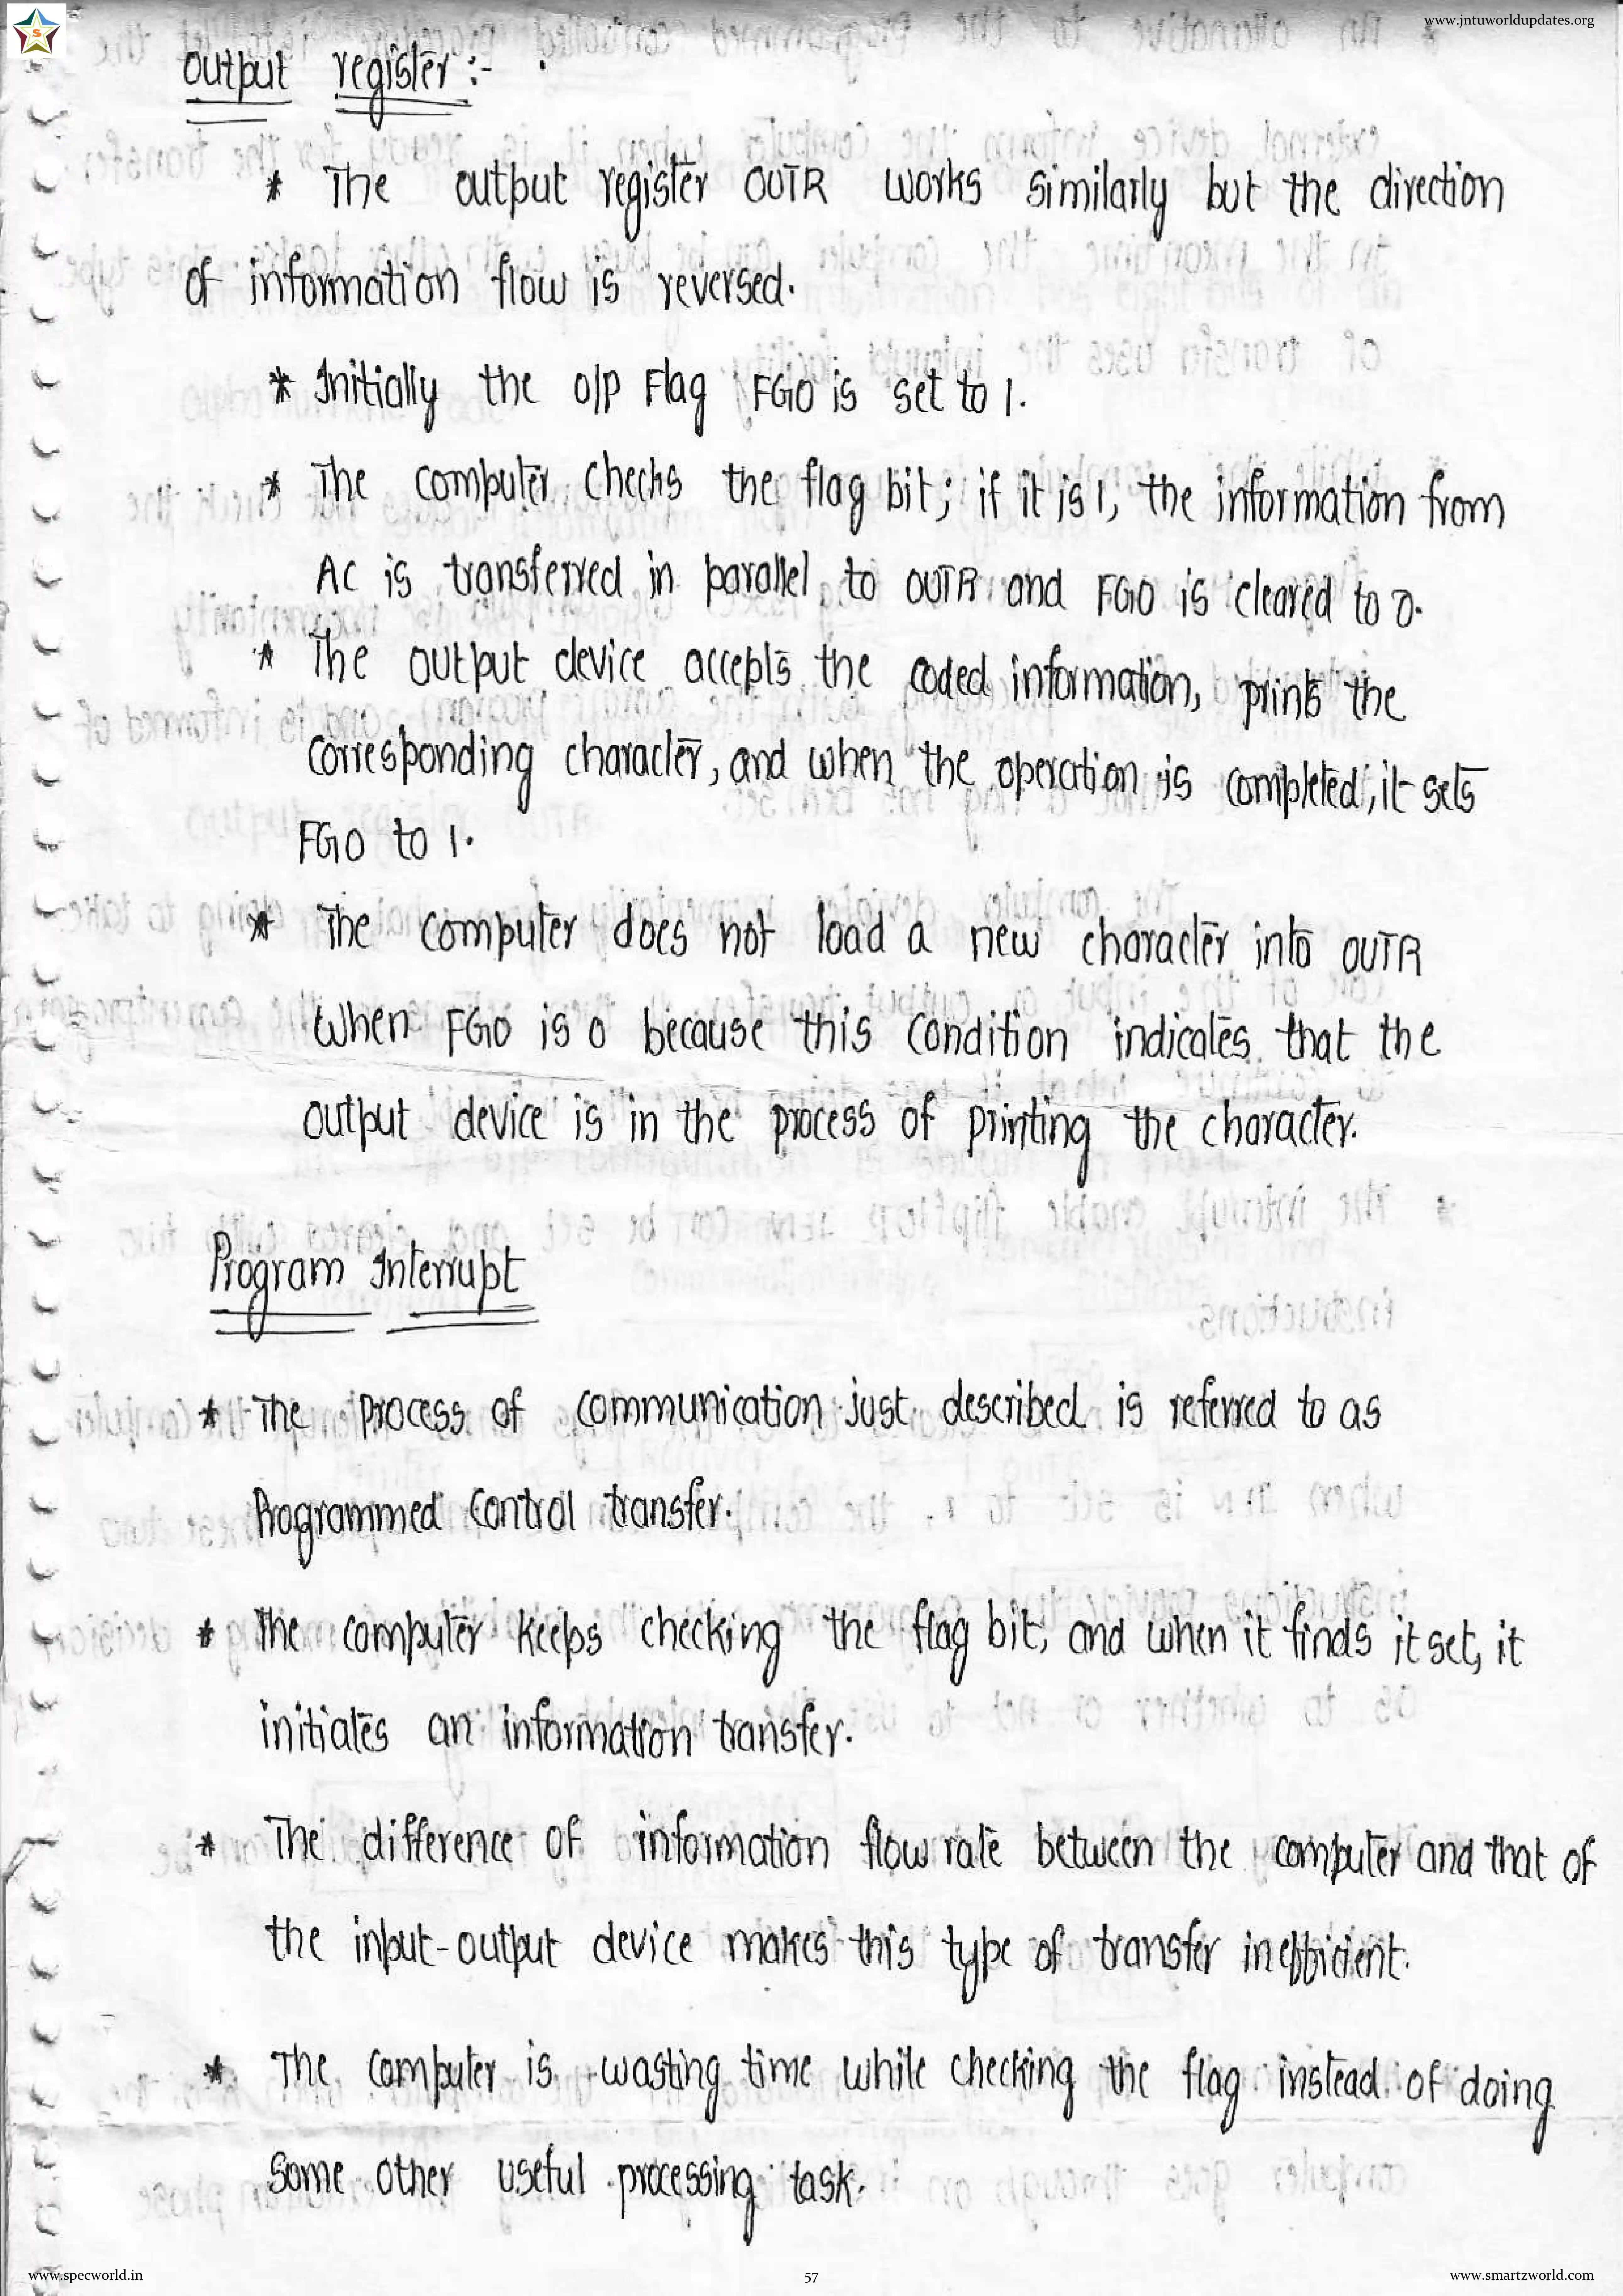 www.jntuworldupdates.org
S
output register :-
* The output register OUTR works similarly but the direction
of information flow is reversed.
* Initially the o/p Flag FGO is set to 1.
* The computer checks the flag bit; if it is 1, the information from
AC is transferred in parallel to OUTR and FGO is cleared to 0.
* The output device accepts the coded information, prints the
corresponding character, and when the operation is completed, it sets
FGO to 1.
* The computer does not load a new character into OUTR
when FGO is 0 because this condition indicates that the
output device is in the process of printing the character.
Program Interrupt
* The process of communication just described is referred to as
Programmed control transfer.
* The computer keeps checking the flag bit, and when it finds it set, it
initiates an information transfer.
* The difference of information flow rate between the computer and that of
the input-output device makes this type of transfer inefficient.
* The computer is wasting time while checking the flag instead of doing
some other useful processing task.
www.specworld.in
57
www.smartzworld.com